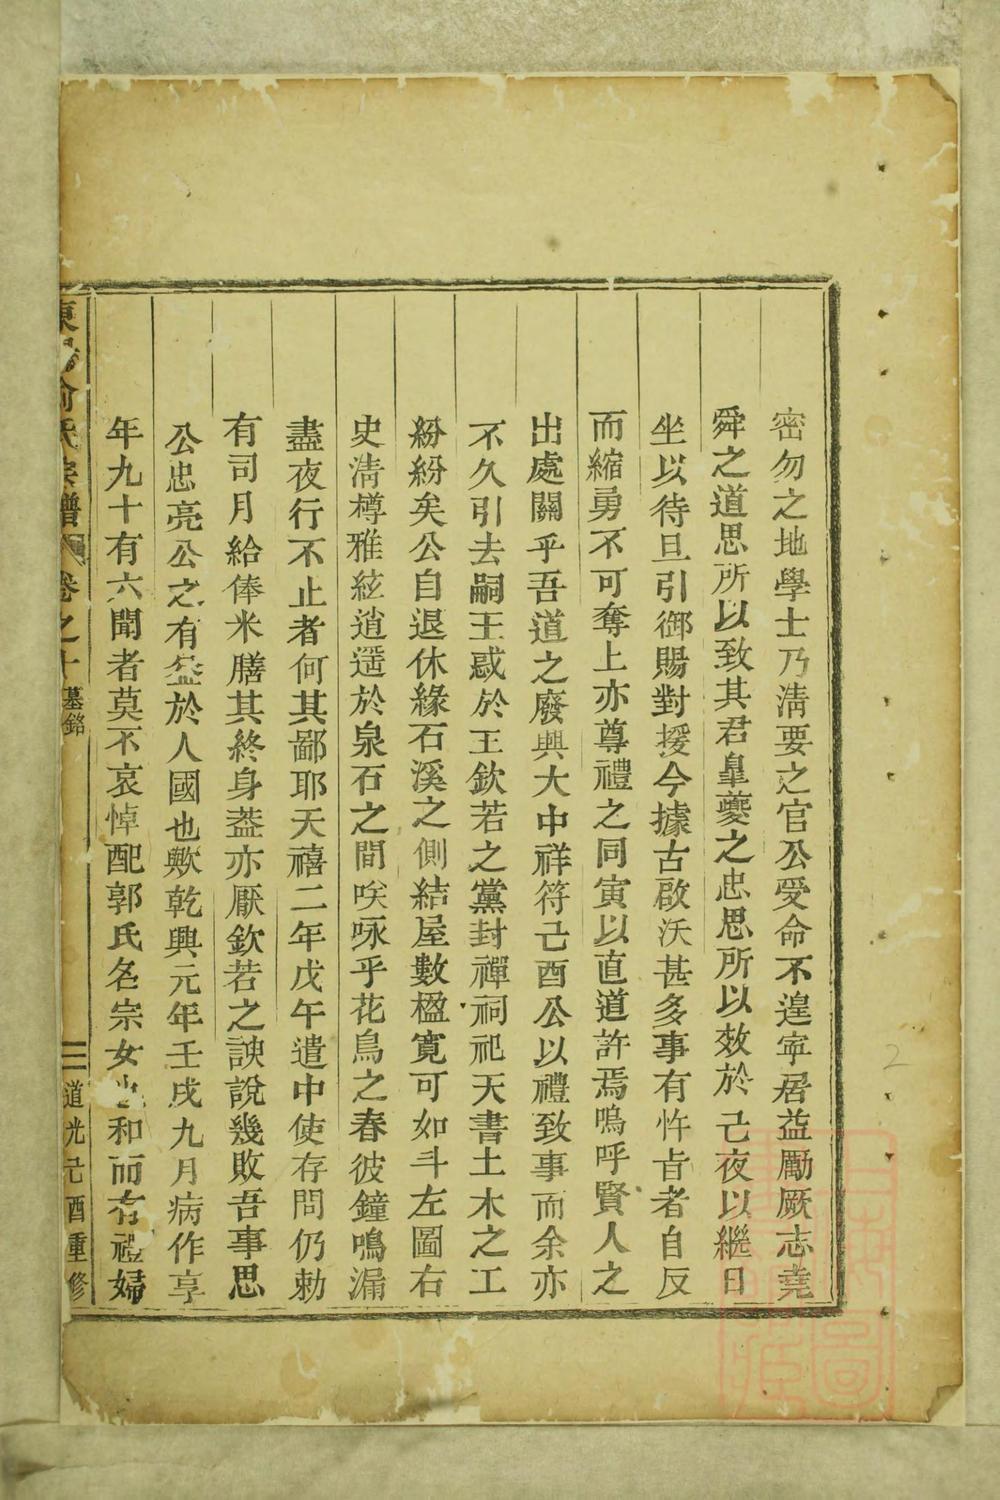 密勿之地學士乃淸要之官公受命不遑寜居益勵厥志堯
舜之道思所以致其君臯夔之忠思所以效於己夜以繼日
坐以待旦引御賜對援今據古啟沃甚多事有忤㫖者自反
而縮勇不可奪上亦尊禮之同寅以直道許焉嗚呼賢人之
出處關乎吾道之廢興大中祥符己酉公以禮致事而余亦
不久引去嗣王惑於王欽若之黨封禪祠祀天書土木之工
紛紛矣公自退休緣石溪之側結屋數楹寬可如斗左圖右
史淸樽雅絃逍遥於泉石之間唉咏乎花鳥之春彼鐘鳴漏
盡夜行不止者何其鄙耶天禧二年戊午遣中使存問仍勅
有司月給俸米膳其終身葢亦厭欽若之諛說幾敗吾事思
公忠亮公之有益於人國也歟乾興元年壬戌九月病作享
年九十有六聞者莫不哀悼配郭氏名宗女也和而有禮婦
俞氏宗譜 卷之十 墓銘 三 道光己酉重修